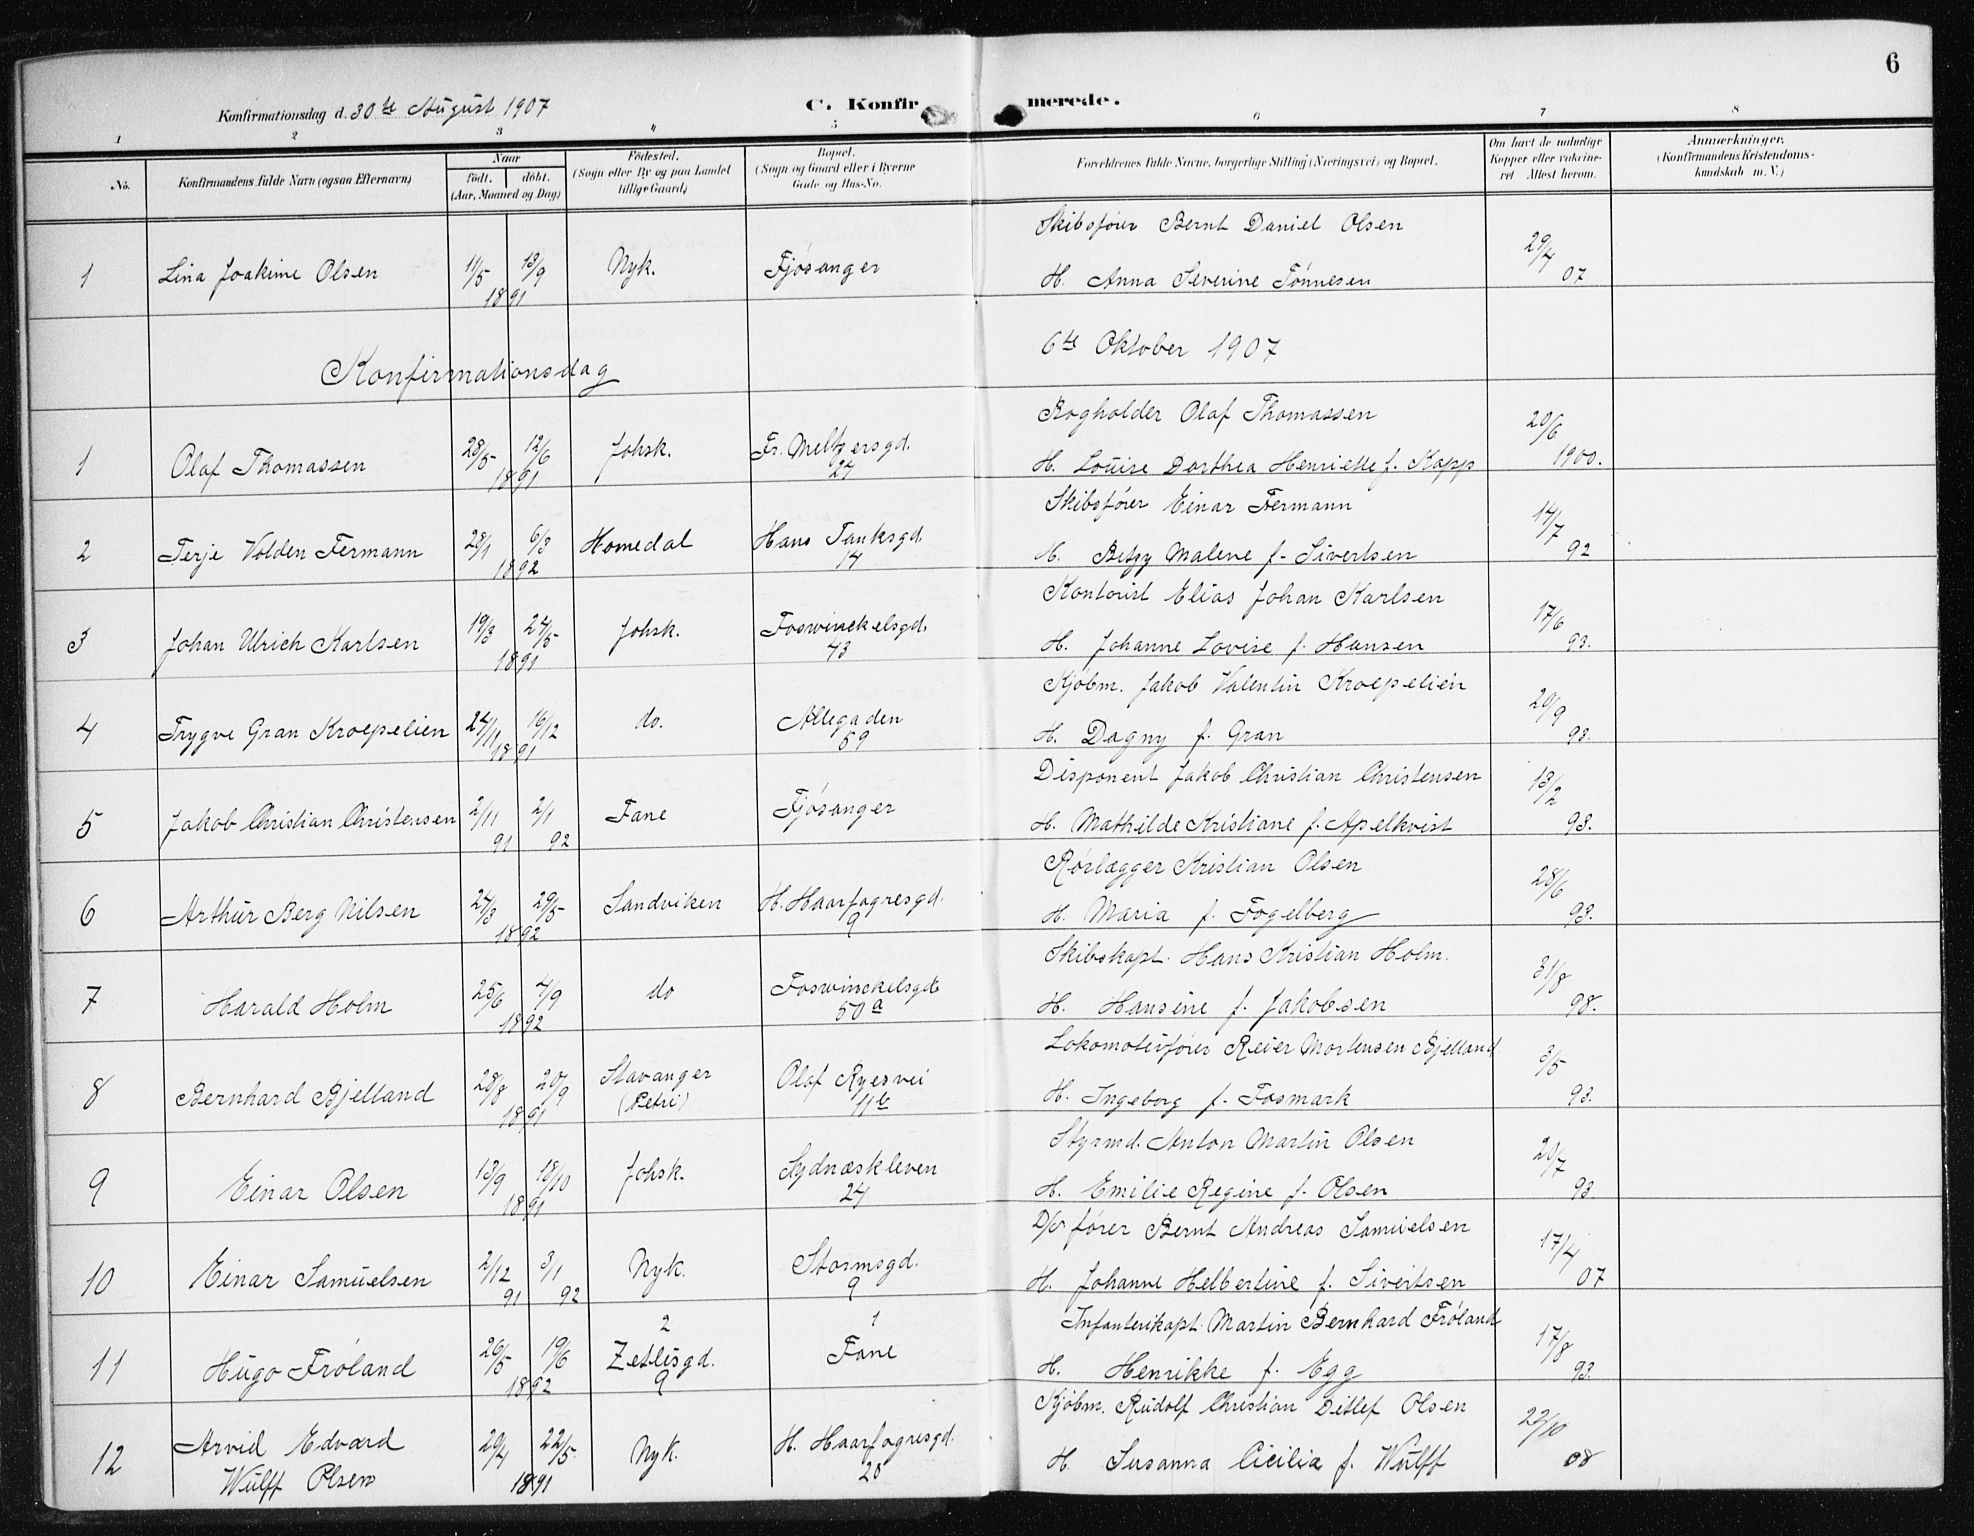 6
Konfirmationsdag d. 30te August 1907 C. Konfirmerede.
1 2 3 4 5 6 7 8
No. Konfirmandens fulde Navn (ogsaa Efternavn) Naar født. døbt. (Aar, Maaned og Dag) Fødested. (Sogn eller By og paa Landet tillige Gaard) Bopæl. (Sogn og Gaard eller i Byerne Gade og Hus-No. Forældrenes fulde Navne, borgerlige Stilling (Næringsvei) og Bopæl. Om havt de naturlige Kopper eller vakcineret Attest herom. Anmærkninger. (Konfirmandens Kristendomskundskab m. V.)
Skibsfører Bernt Daniel Olsen
1 Lina Joakime Olsen 11/5 13/9 1891 Nyk. Fjøsanger H. Anna Severine Tønnesen 29/4 07
Konfirmationsdag 6te Oktober 1907
Bogholder Olaf Thomassen
1 Olaf Thomassen 28/5 12/6 1891 Johsk. Fr. Meltzersgd. 24 H. Louise Dorthea Henriette f. Kapp 20/6 1900.
Skibsfører Einar Fermann
2 Terje Volden Fermann 28/1 6/3 1892 Homedal Hans Tanksgd. 14 H. Betzy Malene f. Sivertsen 14/7 92
Kontorist Elias Johan Karlsen
3 Johan Ulrich Karlsen 19/3 24/5 1891 Johsk. Foswinckelsgd. 43 H. Johanne Lovise f. Hansen 17/6 93.
Kjøbm. Jakob Valentin Kroepelien
4 Trygve Gran Kroepelien 24/11 16/12 1891 do. Allegaden 59 H. Dagny f. Gran 20/9 93.
Disponent Jakob Christian Christensen
5 Jakob Christian Christensen 2/11 91 2/1 92 Fane Fjøsanger H. Mathilde Kristiane f. Apelkvist 13/2 93.
Rørlægger Kristian Olsen
6 Arthur Berg Nilsen 24/3 29/5 1892 Sandviken H. Haarfagresgd. 9 H. Maria f. Fogelberg 28/6 93.
Skibskapt. Hans Kristian Holm.
7 Harald Holm 25/6 4/9 1892 do Foswinckelsgd. 50a H. Hansine f. Jakobsen 31/8 98.
Lokomotivfører Reier Mortensen Bjelland
8 Bernhard Bjelland 28/8 20/9 1891 Stavanger (Petri) Olaf Ryesvei 11te H. Ingeborg f. Fosmark 3/5 93.
Styrmd. Anton Martin Olsen
9 Einar Olsen 13/9 18/10 1891 Johsk. Sydnæskleven 24 H. Emilie Regine f. Olsen 20/7 93
D/s fører Bernt Andreas Samuelsen
10 Einar Samuelsen 2/12 91 3/1 92 Nyk. Stormsgd. 9 H. Johanne Helbertine f. Sivertsen 17/4 07
Infanterikapt. Martin Bernhard Frøland
11 Hugo Frøland 26/5 19/6 1892 2 Zetlisgd. 9 1 Fane H. Henrikke f. Egg 17/8 93.
Kjøbm. Rudolf Christian Ditlef Olsen
12 Arvid Edvard Wulff Olsen 29/4 22/5 1891 Nyk. H. Haarfagresgd. 20 H. Susanna Cicilia f. Wulff 22/10 08